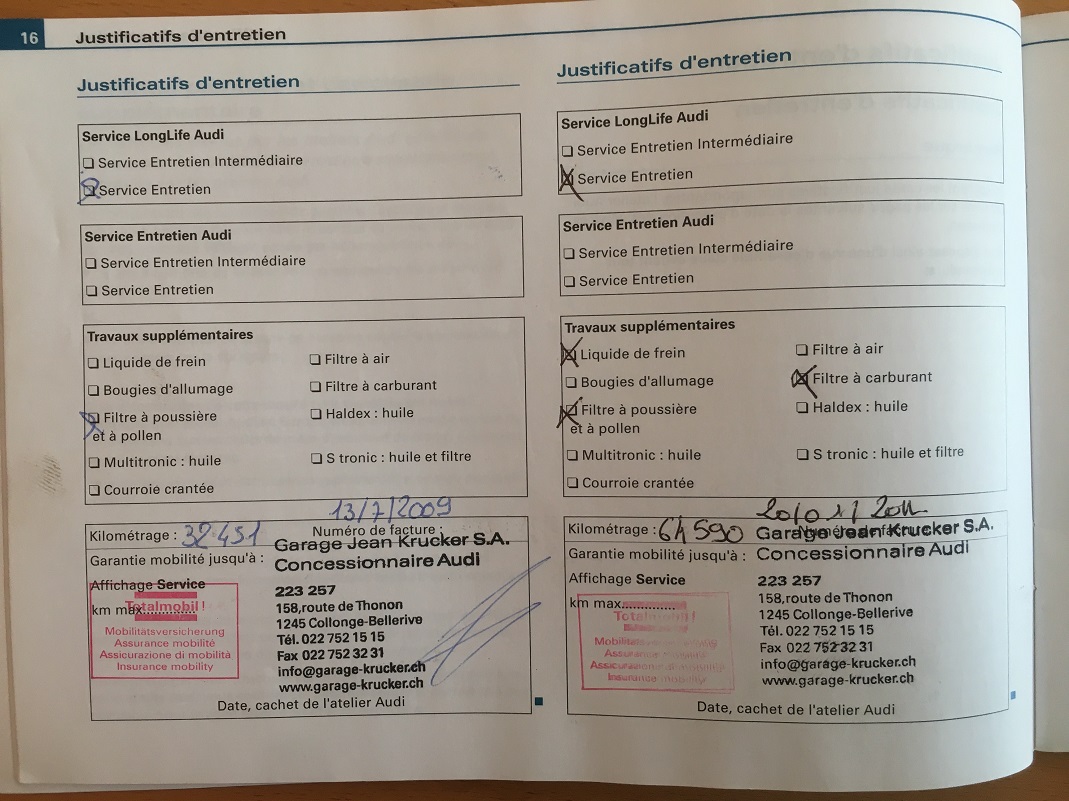 16 Justificatifs d'entretien
Justificatifs d'entretien
Service LongLife Audi
Service Entretien Intermédiaire
Service Entretien
Service Entretien Audi
Service Entretien Intermédiaire
Service Entretien
Travaux supplémentaires
Liquide de frein
Filtre à air
Bougies d'allumage
Filtre à carburant
Filtre à poussière
et à pollen
Haldex : huile
Multitronic : huile
S tronic : huile et filtre
Courroie crantée
13/7/2009
Kilométrage : 32 451
Numéro de facture :
Garage Jean Krucker S.A.
Garantie mobilité jusqu'à :
Concessionnaire Audi
Affichage Service
km max..............
Totalmobil !
Mobilitätsversicherung
Assurance mobilité
Assicurazione di mobilità
Insurance mobility
223 257
158,route de Thonon
1245 Collonge-Bellerive
Tél. 022 752 15 15
Fax 022 752 32 31
info@garage-krucker.ch
www.garage-krucker.ch
Date, cachet de l'atelier Audi
Justificatifs d'entretien
Service LongLife Audi
Service Entretien Intermédiaire
Service Entretien
Service Entretien Audi
Service Entretien Intermédiaire
Service Entretien
Travaux supplémentaires
Liquide de frein
Filtre à air
Bougies d'allumage
Filtre à carburant
Filtre à poussière
et à pollen
Haldex : huile
Multitronic : huile
S tronic : huile et filtre
Courroie crantée
Kilométrage : 64 590
Numéro de facture :
Garage Jean Krucker S.A.
Garantie mobilité jusqu'à :
Concessionnaire Audi
Affichage Service
km max..............
Totalmobil !
Mobilitätsversicherung
Assurance mobilité
Assicurazione di mobilità
Insurance mobility
223 257
158,route de Thonon
1245 Collonge-Bellerive
Tél. 022 752 15 15
Fax 022 752 32 31
info@garage-krucker.ch
www.garage-krucker.ch
Date, cachet de l'atelier Audi